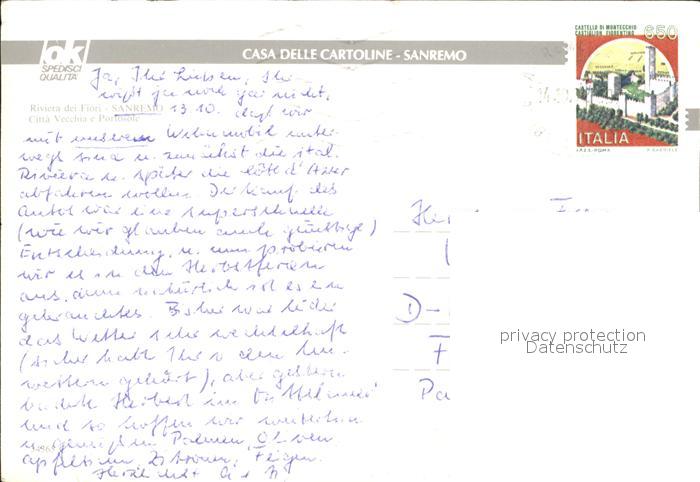 ok
SPEDISCI
QUALITÀ
CASA DELLE CARTOLINE - SANREMO
CASTELLO DI MONTECCHIO
CASTIGLION FIORENTINO
650
ITALIA
I.P.Z.S. - ROMA
Riviera dei Fiori - SANREMO
Città Vecchia e Portosole
Ja, Ihr Lieben, Ihr
wißt ja noch gar nicht,
13.10. daß wir
mit unserem Wohnmobil unter-
wegs sind u. zunächst die ital.
Riviera u. später die Côte d'Azur
abfahren wollen. Der Kauf des
Autos war eine superschnelle
(wie wir glauben auch günstige)
Entscheidung, u. nun probieren
wir es in den Herbstferien
aus, denn natürlich ist es ein
gebrauchtes. Bisher war leider
das Wetter sehr wechselhaft
(sicher habt Ihr von den Un-
wettern gehört), aber gestern
badete Herbert im Mittelmeer
und so hoffen wir weiterhin
u. genießen Palmen, Oliven
Apfelsinen, Zitronen, Feigen.
Herzlichst
D-
privacy protection
Datenschutz